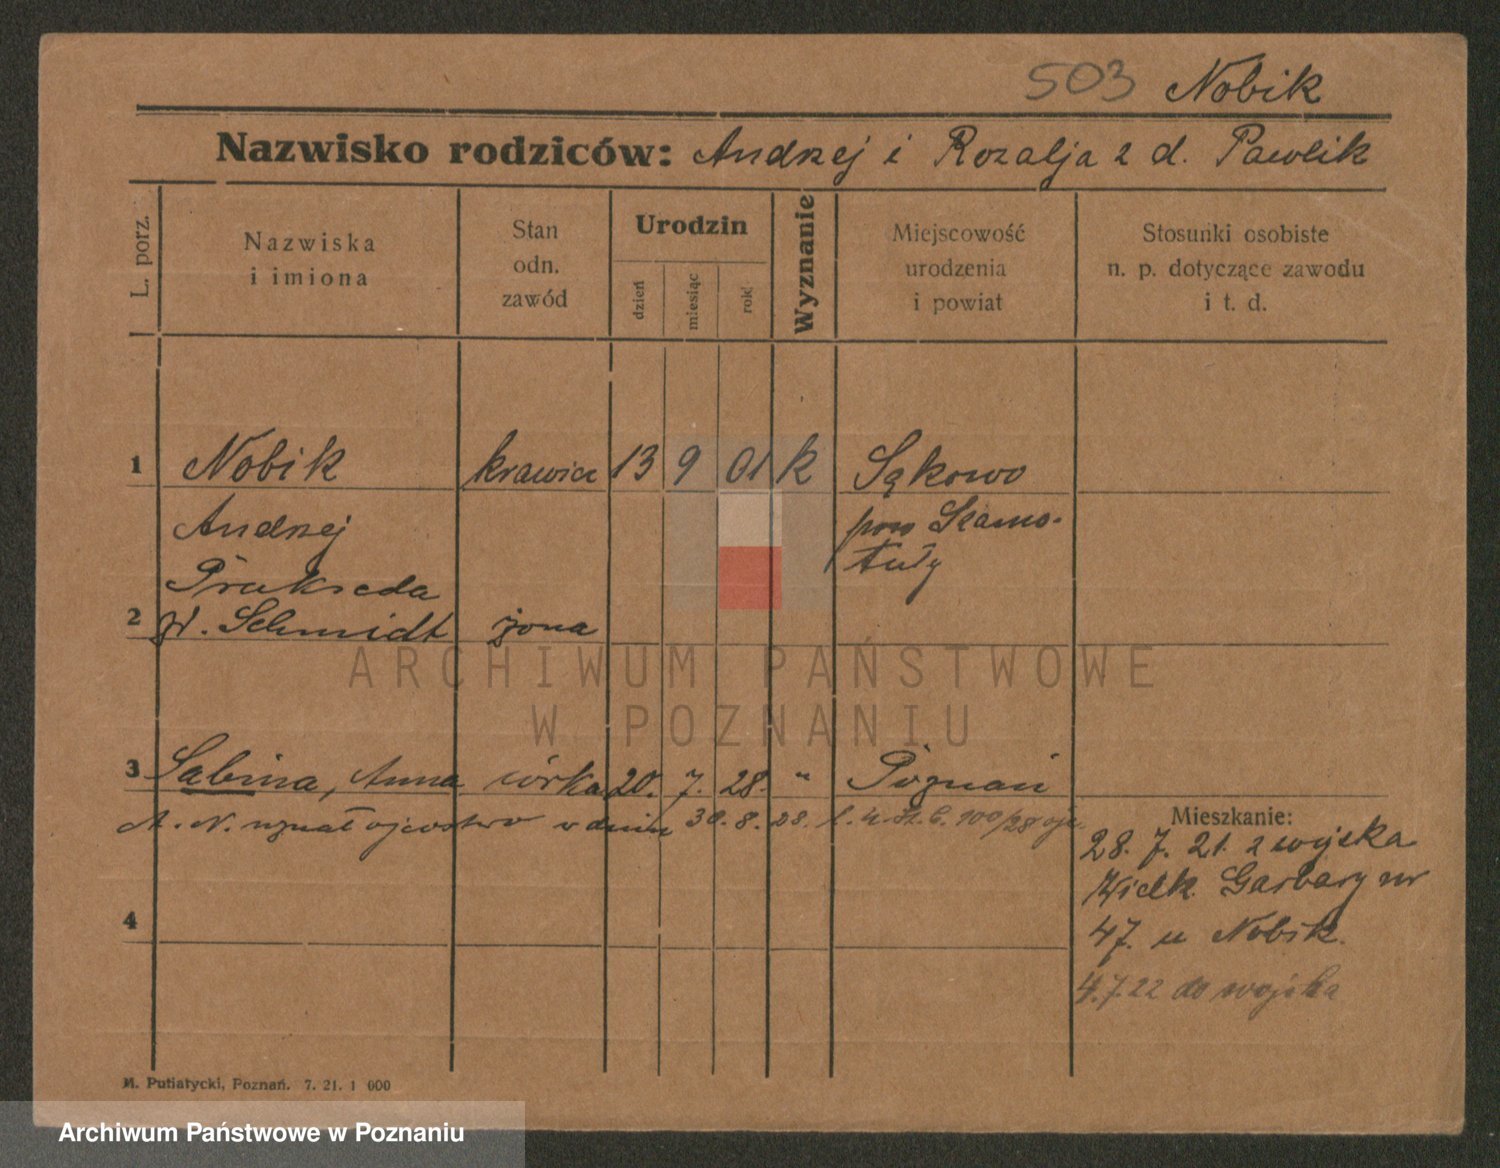 503 Nobik
Nazwisko rodziców: Andrzej i Rozalja z d. Pawlik
L. porz.
Nazwiska
i imiona
Stan
odn.
zawód
Urodzin
dzień
miesiąc
rok
Wyznanie
Miejscowość
urodzenia
i powiat
Stosunki osobiste
n. p. dotyczące zawodu
i t. d.
1 Nobik krawiec 13 9 01 k Sąkowo
Andrzej pow Szamo-
tuły
Prakseda
2 Schmidt żona
ARCHIWUM PAŃSTWOWE
W POZNANIU
3 Sabina, Anna córka 20. 7. 28. " Poznań
A. N. uznał ojcostwo w dniu 30. 8. 28. 100/28
Mieszkanie:
28. 7. 21. z wojska
Wielk. Garbary nr
47. u Nobik.
4
4.7.22 do wojska
M. Putiatycki, Poznań. 7. 21. 1 000
Archiwum Państwowe w Poznaniu